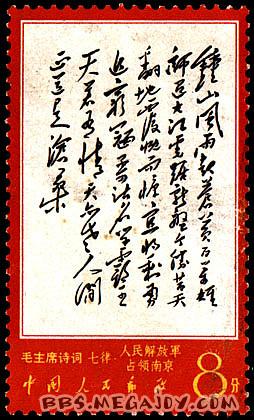 鐘山風雨起蒼黃百万雄
師过大江虎踞龍盤今勝昔天
翻地覆慨而慷宜將剩勇
追窮寇不可沽名学霸王
天若有情天亦老人間
正道是滄桑
毛主席诗词 七律·人民解放軍
占领南京
中国人民邮政
8分
BBS.MEGAJOY.COM